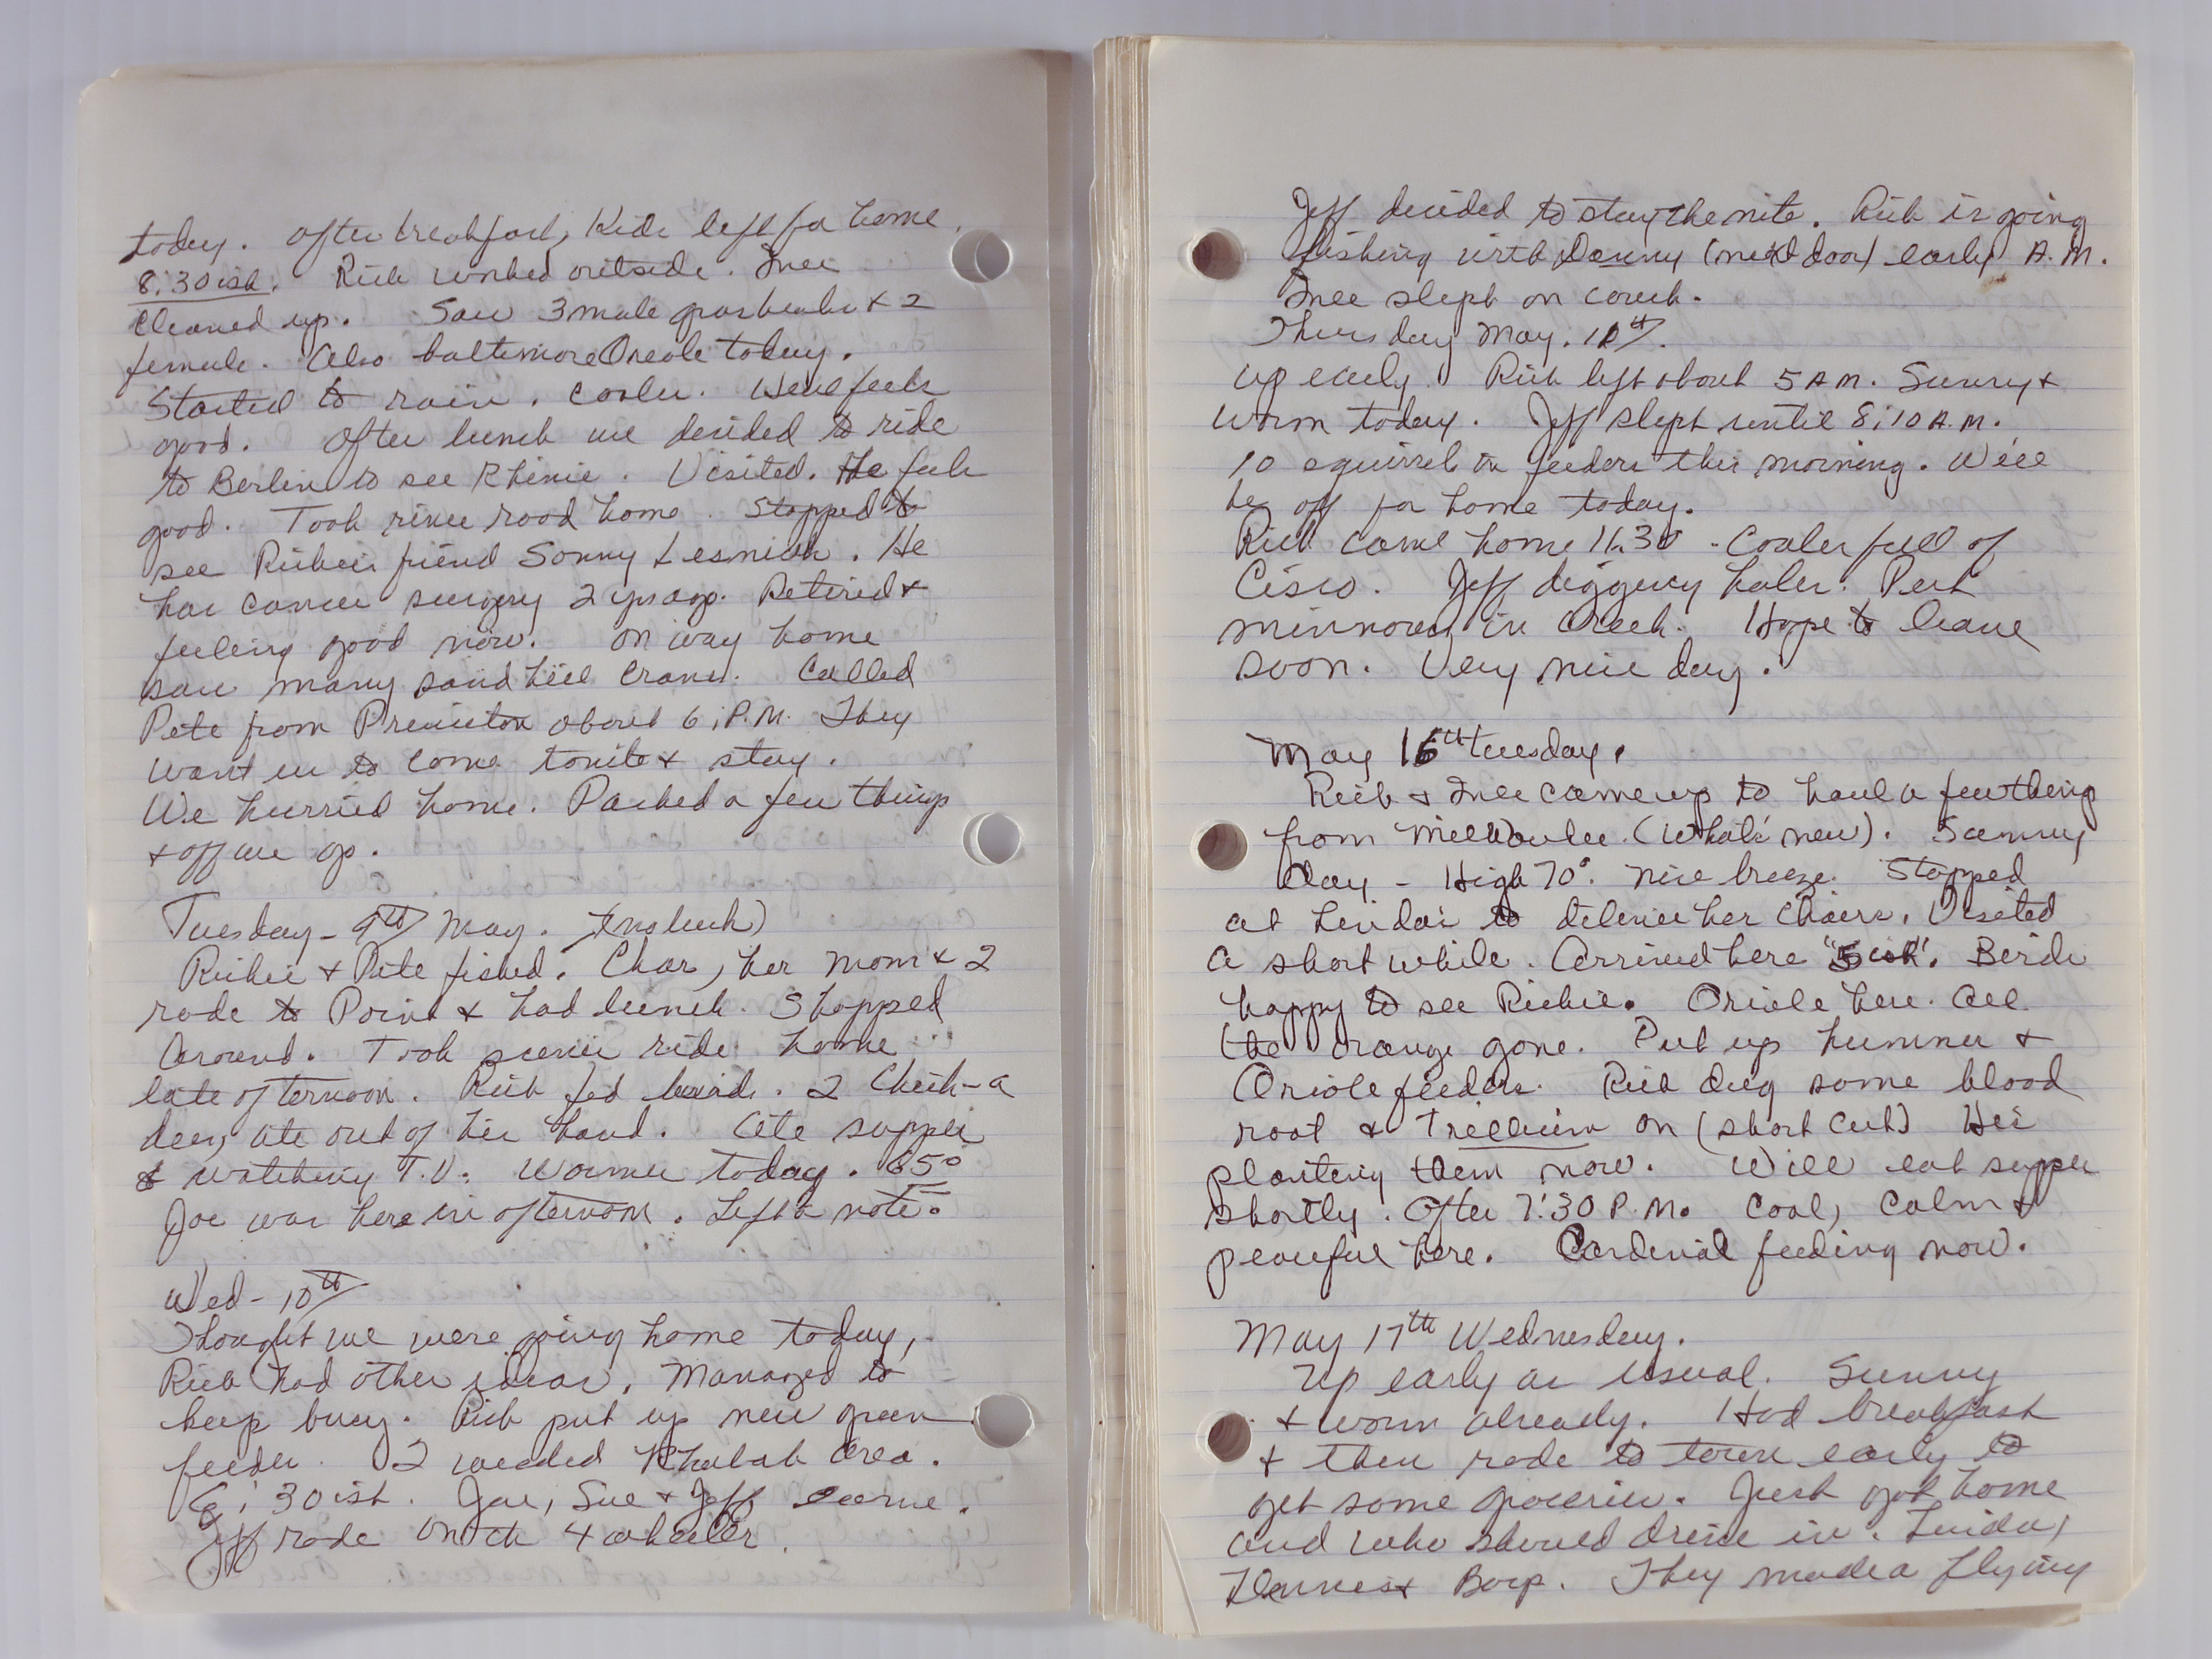 today. After breakfast, Kids left for home.
8:30ish. Rich worked outside. Inee
cleaned up. Saw 3 male grosbeaks & 2
female. Also baltimore Oreole today.
Started to rain. Cooler. Well feels
good. After lunch we decided to ride
to Berlin to see Rhinie. Visited. He feels
good. Took river road home. Stopped to
see Richies friend Sonny Lesniak. He
had cancer surgery 2 yrs ago. Retired &
feeling good now. On way home
saw many sand hill cranes. Called
Pete from Princeton about 6 P.M. They
want us to come tonite & stay.
We hurried home. Packed a few things
& off we go.
Tuesday - 9th May. (no luck)
Richie & Pete fished. Char, her Mom & I
rode to Point & had lunch. Shopped
Around. Took scenic ride home
late afternoon. Rich fed birds. 2 Chick-a
dees, ate out of his hand. Ate supper
& watching T.V. Warmer today. 65°
Joe was here in afternoon. Left a note.
Wed - 10th
Thought we were going home today,
Rich had other ideas. Managed to
keep busy. Rich put up new green
feeder. I weeded Rhubab area.
6:30ish. Joe, Sue & Jeff came.
Jeff rode on the 4 wheeler.
Jeff decided to stay the nite. Rich is going
fishing with Danny (next door) early A.M.
Inee slept on couch.
Thursday May. 11th.
Up early. Rich left about 5 AM. Sunny &
warm today. Jeff slept until 8:10 A.M.
10 squirrels on feeders this morning. We'll
be off for home today.
Rich came home 11:30 - Cooler full of
Cisco. Jeff digging holes. Put
minnows in Creek. Hope to leave
soon. Very nice day.
May 16th tuesday.
Rich & Inee came up to haul a few things
from Milwaukee. (What's new). Sunny
day - High 70°. Nice breeze. Stopped
at Linda's to deliver her chairs. Visited
a short while. Arrived here "5ish". Birds
happy to see Richie. Oriole here. All
the orange gone. Put up hummer &
Oriole feeders. Rich dug some blood
root & Trillium on (short cut) He's
planting them now. Will eat supper
shortly. After 7:30 P.M. Cool, Calm &
peaceful here. Cardinal feeding now.
May 17th Wednesday.
Up early as usual. Sunny
& warm already. Had breakfast
& then rode to town early to
get some groceries. Just got home
and who should drive in. Linda,
Dennis & Boep. They made a flying